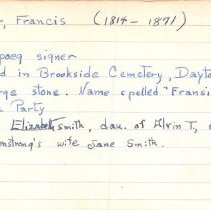 , Francis (1814 - 1871)
poeg signer
d in Brookside Cemetery, Dayto
rge stone. Name spelled "Fransi
Party
Elizabeth Smith, dau. of Alvin T,
mstrong's wife Jane Smith.